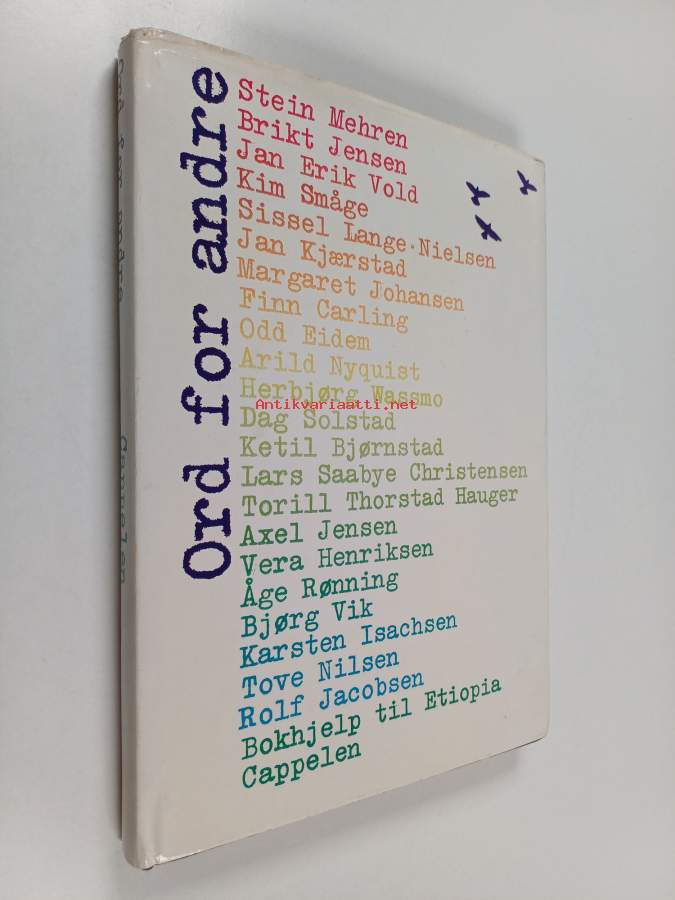 Ord for andre
Stein Mehren
Brikt Jensen
Jan Erik Vold
Kim Småge
Sissel Lange-Nielsen
Jan Kjærstad
Margaret Johansen
Finn Carling
Odd Eidem
Arild Nyquist
Herbjørg Wassmo
Antikvariaatti.net
Dag Solstad
Ketil Bjørnstad
Lars Saabye Christensen
Torill Thorstad Hauger
Axel Jensen
Vera Henriksen
Åge Rønning
Bjørg Vik
Karsten Isachsen
Tove Nilsen
Rolf Jacobsen
Bokhjelp til Etiopia
Cappelen
Ord for andre
Cappelen